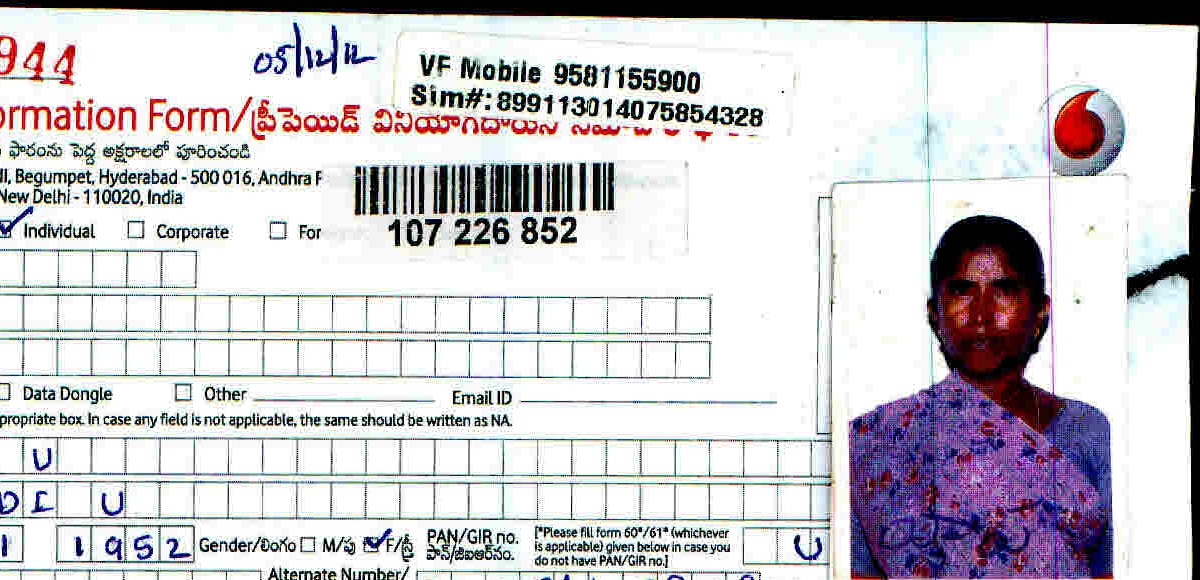 944
05/12/12
VF Mobile 9581155900
Sim#: 899113014075854328
ormation Form/ప్రీపెయిడ్ వినియోగదారుని
ఫారంను పెద్ద అక్షరాలలో పూరించండి
II, Begumpet, Hyderabad - 500 016, Andhra P
New Delhi - 110020, India
Individual Corporate For
107 226 852
Data Dongle Other Email ID
propriate box. In case any field is not applicable, the same should be written as NA.
U
D I U
1 1952 Gender/లింగం M/పు F/స్త్రీ PAN/GIR no. పాన్/జిఐఆర్‌నం. [*Please fill form 60*/61* (whichever is applicable) given below in case you do not have PAN/GIR no.] U
Alternate Number/